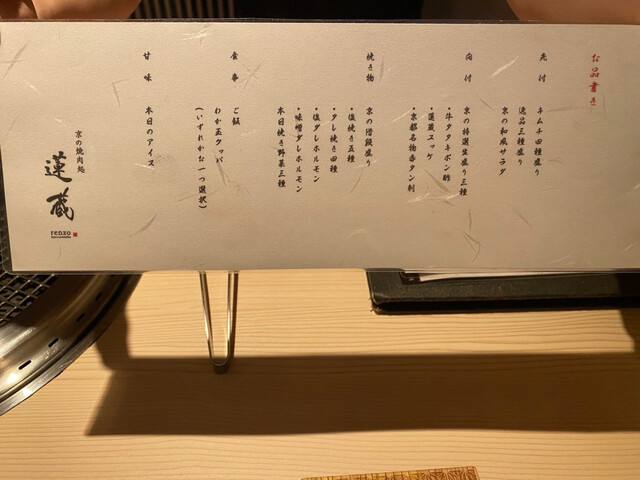 お品書き
先付 キムチ四種盛り
逸品三種盛り
京の和風サラダ
向付 京の特選生盛り三種
・牛タタキポン酢
・蓮蔵ユッケ
・京都名物香タン刺
焼き物 京の階段盛り
・塩焼き五種
・タレ焼き四種
・塩ダレホルモン
・味噌ダレホルモン
本日焼き野菜三種
食事 ご飯
わか玉クッパ
(いずれかお一つ選択)
甘味 本日のアイス
京の焼肉処
蓮蔵
renzo